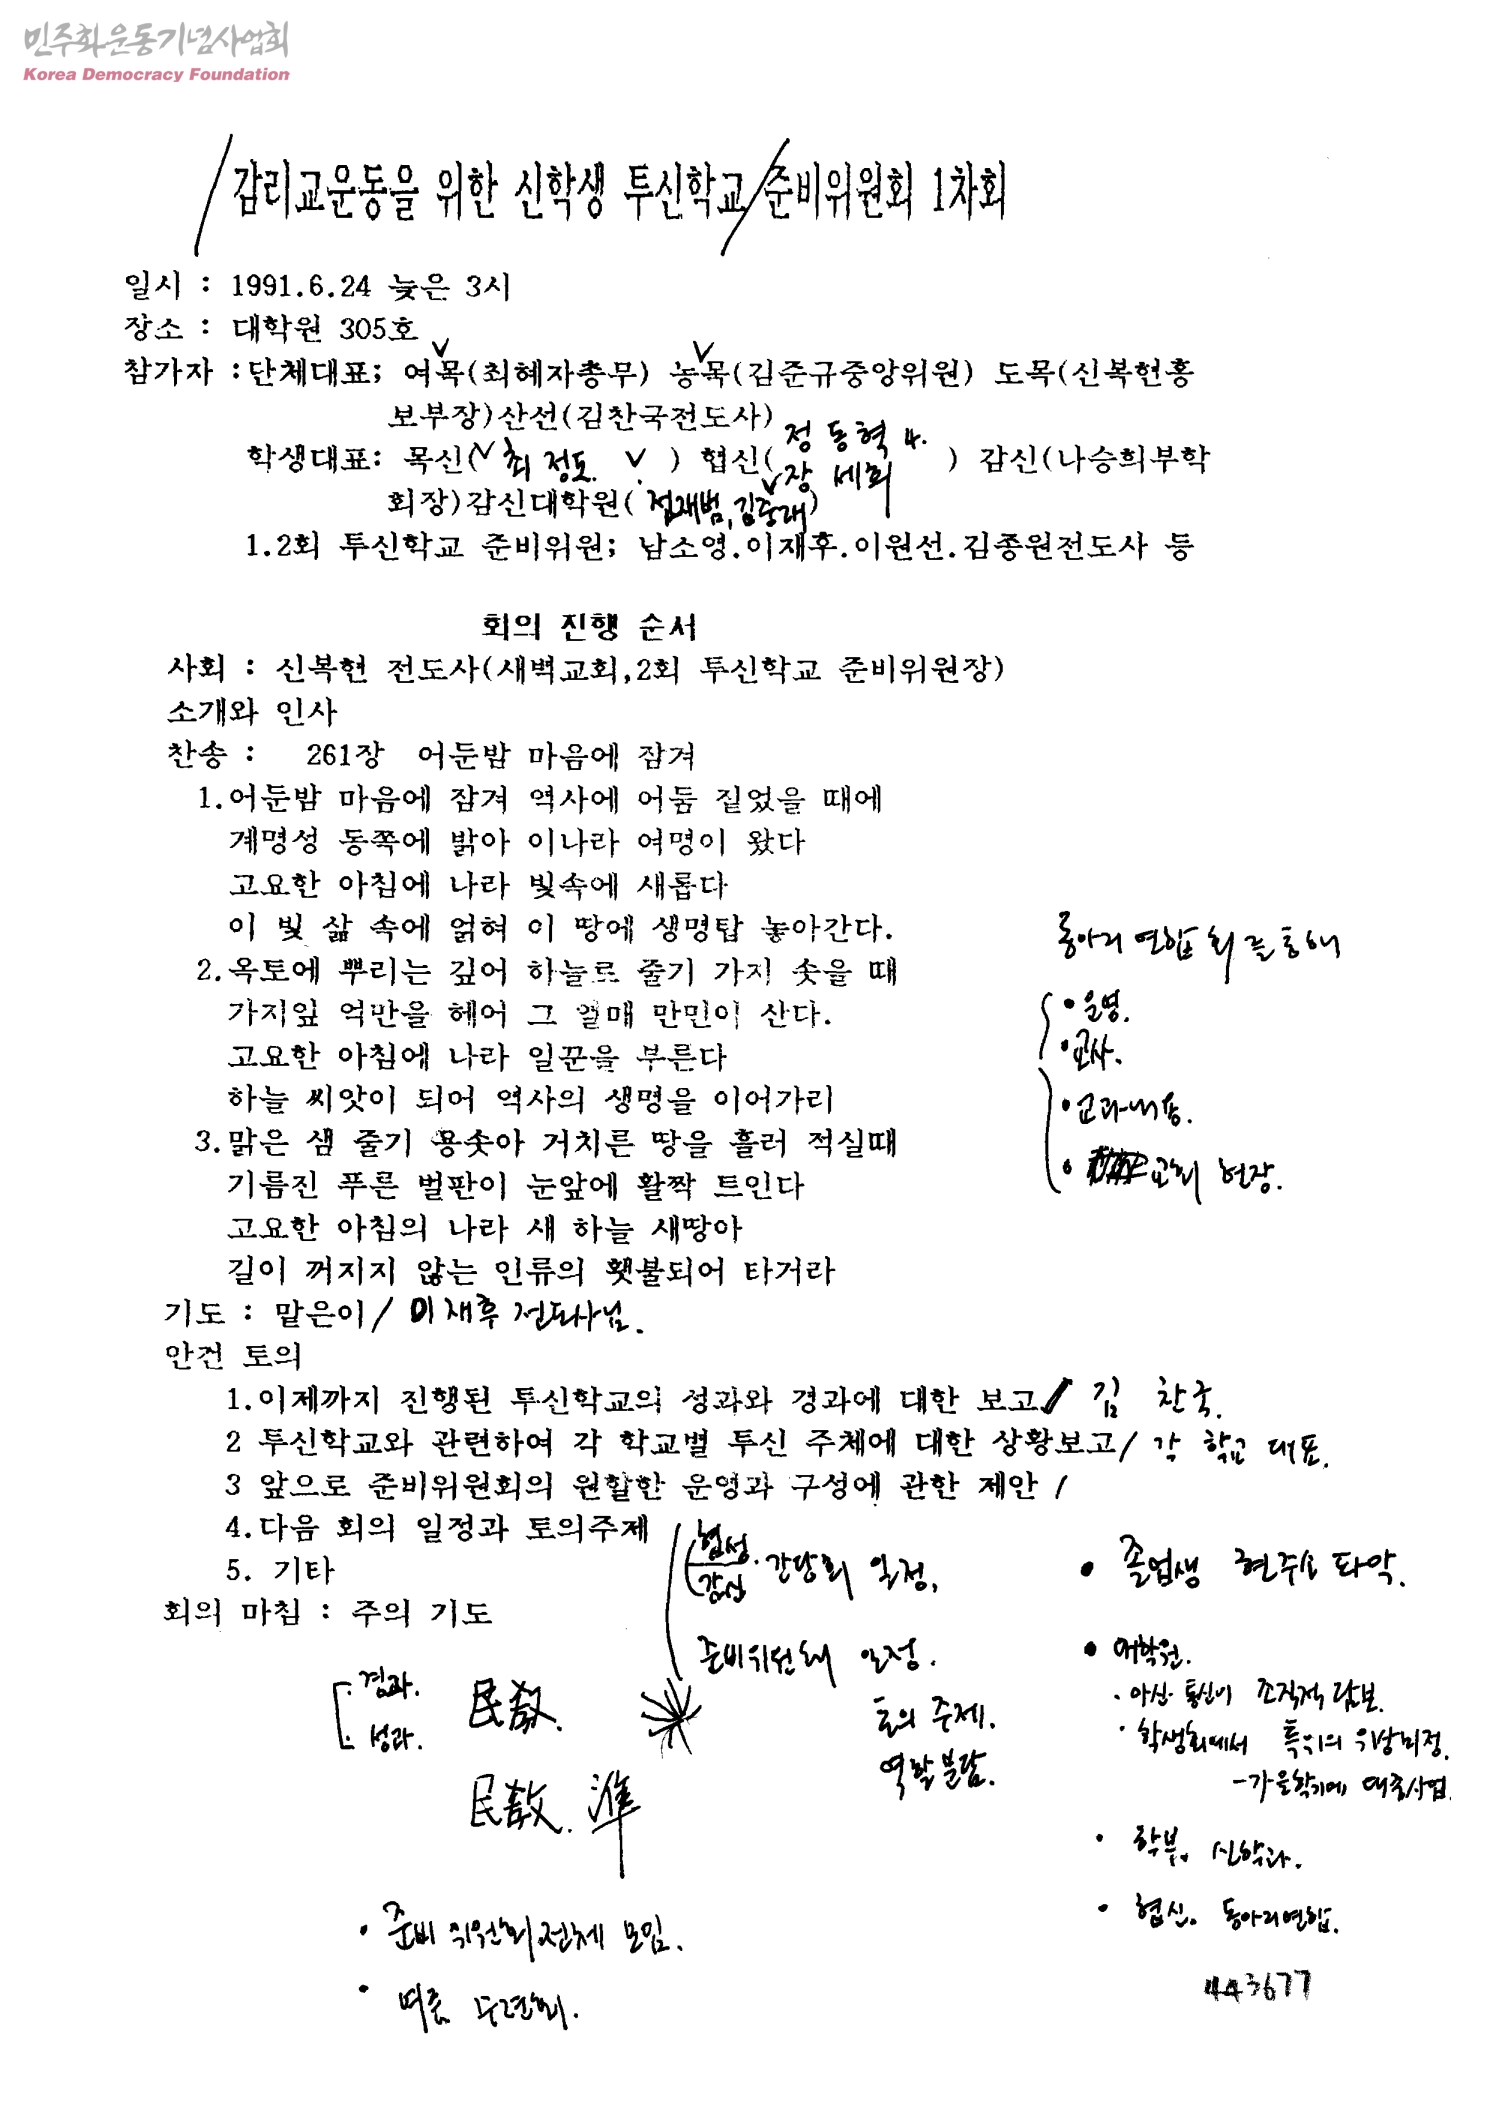 민주화운동기념사업회
Korea Democracy Foundation
감리교운동을 위한 신학생 투신학교/준비위원회 1차회
일시 : 1991.6.24 늦은 3시
장소 : 대학원 305호
참가자 :단체대표; 여목(최혜자총무) 농목(김준규중앙위원) 도목(신복현홍
보부장)산선(김찬국전도사)
정동혁 4.
학생대표: 목신( 최정도. ) 협신( 장세희 ) 감신(나승희부학
회장)감신대학원( 김중래)
1.2회 투신학교 준비위원; 남소영.이재후.이원선.김종원전도사 등
회의 진행 순서
사회 : 신복현 전도사(새벽교회,2회 투신학교 준비위원장)
소개와 인사
찬송 : 261장 어둔밤 마음에 잠겨
1.어둔밤 마음에 잠겨 역사에 어둠 짙었을 때에
계명성 동쪽에 밝아 이나라 여명이 왔다
고요한 아침에 나라 빛속에 새롭다
이 빛 삶 속에 얽혀 이 땅에 생명탑 놓아간다.
2.옥토에 뿌리는 깊어 하늘로 줄기 가지 솟을 때
가지잎 억만을 헤어 그 열매 만민이 산다.
고요한 아침에 나라 일꾼을 부른다
하늘 씨앗이 되어 역사의 생명을 이어가리
3.맑은 샘 줄기 용솟아 거치른 땅을 흘러 적실때
기름진 푸른 벌판이 눈앞에 활짝 트인다
고요한 아침의 나라 새 하늘 새땅아
길이 꺼지지 않는 인류의 횃불되어 타거라
동아리 연합회를 통해
• 운영.
• 교사.
• 교과내용.
• 교회 현장.
기도 : 맡은이/ 이재후 전도사님.
안건 토의
1.이제까지 진행된 투신학교의 성과와 경과에 대한 보고/ 김 찬국.
2 투신학교와 관련하여 각 학교별 투신 주체에 대한 상황보고/ 각 학교 대표.
3 앞으로 준비위원회의 원할한 운영과 구성에 관한 제안 /
4.다음 회의 일정과 토의주제
5. 기타
회의 마침 : 주의 기도
협성. 감신 간담회 일정,
준비위원회 일정.
토의 주제.
역할분담.
경과.
성과.
民敎.
民敎. 準
• 준비위원회 전체 모임.
• 여름 수련회.
• 졸업생 현주소 파악.
• 대학원.
· 조직적 담보.
· 학생회에서 특위의 위상미정.
-가을학기에 대중사업.
• 학부. 신학과.
• 협신. 동아리연합.
443677